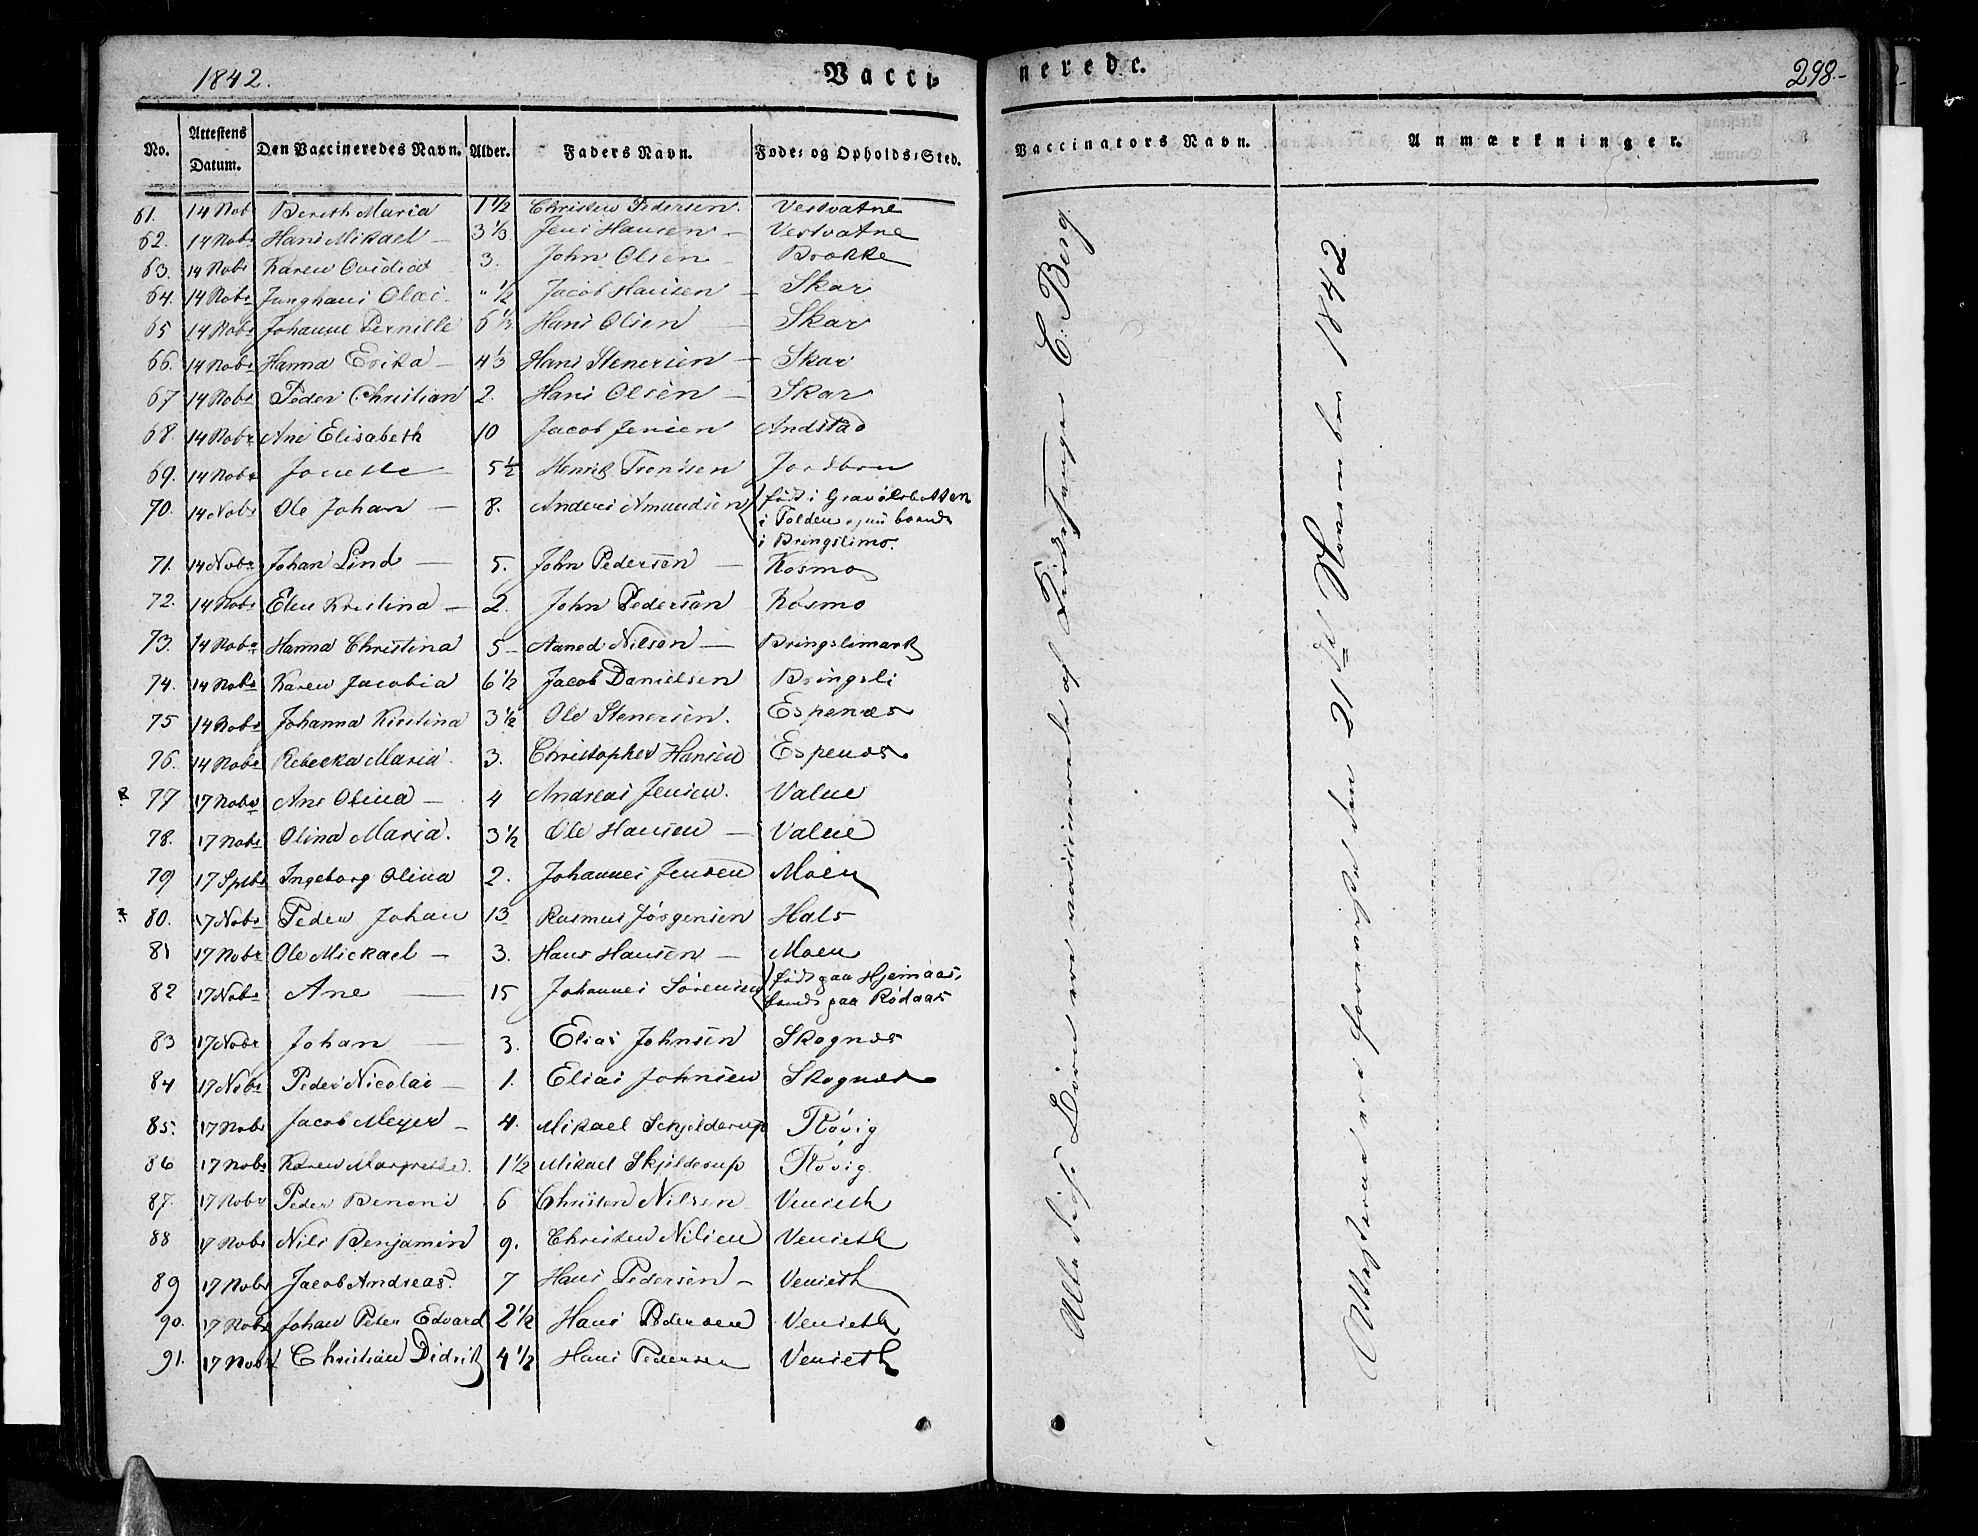 1842. Vacci= nerede. 298.-
No. Attestens Datum. Den Vaccineredes Navn. Alder. Faders Navn. Føde= og Opholds=Sted. Vaccinators Navn. Anmærkninger.
61. 14 Nob Bereth Maria 1 1/2 Christen Pedersen. Vestvatne
62. 14 Nobr Hans Mikael — 3 1/3 Jens Hansen — Vestvatne
63. 14 Nobr Karen Ovidia 3. John Olsen — Brokke
64. 14 Nobr Junghans Olai " 1/2 Jacob Hansen — Skar
65 14 Nobr Johanne Pernille 6 1/2 Hans Olsen — Skar
66. 14 Nobr Hanna Erika — 4 1/3 Hans Stenersen — Skar
67 14 Nobr Peder Christian 2. Hans Olsen — Skar
68. 14 Nobr Ane Elisabeth 10 Jacob Jensen Andstad
69. 14 Nobr Jonette — 5 1/2 Henrik Tronsen Jordbru
70. 14 Nobr Ole Johan — 8. Anders Amundsen født i Graværbotten
i Folden og nu boende
i Bringslimo.
71. 14 Nobr Johan Lind — 5. John Pedersen — Kosmo
72. 14 Nobr Elen Kristina — 2. John Pedersen Kosmo
73. 14 Nobr Hanna Christina 5 — Aanod Nilsen — Bringslimark
74. 14 Nobr Karen Jacobia 6 1/2 Jacob Danielsen Bringsli
75 14 Nobr Johanna Kirstina 3 1/2 Ole Stenersen. Espenæs
76. 14 Nobr Rebekka Maria. 3. Christopher Hansen Espenæs
77 17 Nobr Ane Olina — 4 Andreas Jensen. Valne
78. 17 Nobr Olina Maria. 3 1/2 Ole Hansen — Valne
79 17 Sptbr Ingeborg Olina 2. Johannes Jensen Moen
80. 17 Nobr Peder Johan 13 Rasmus Jørgensen Hals
81 17 Nobr Ole Mickael — 3. Hans Hansen — Moen
82 17 Nobr Ane — 15 Johannes Sørensen født paa Hjemaas,
boende paa Rødaas
83 17 Nobr Johan — 3. Elias Johnsen Skognæs
84 17 Nobr Peder Nicolai — 1. Elias Johnsen Skognæs
85. 17 Nobr Jacob Meyer — 4. Mikael Schjelderup Røvig
86 17 Nobr Karen Margrethe. 1 1/2 Mikael Skjelderup Røvig.
87. 17 Nobr Peder Benoni 6 Christen Nilsen Venseth
88 17 Nobr Nils Benjamin 9. Christen Nilsen Venseth
89 17 Nobr Jacob Andreas. 7 Hans Pedersen — Venseth
90. 17 Nobr Johan Peter Edvard 2 1/2 Hans Pedersen Venseth
91. 17 Nobr Christian Didrik 4 1/2 Hans Pedersen Venseth
Alle disse Børn ere vaccinerede af C. Berg
Attesterne ere forevist den 21de November 1842